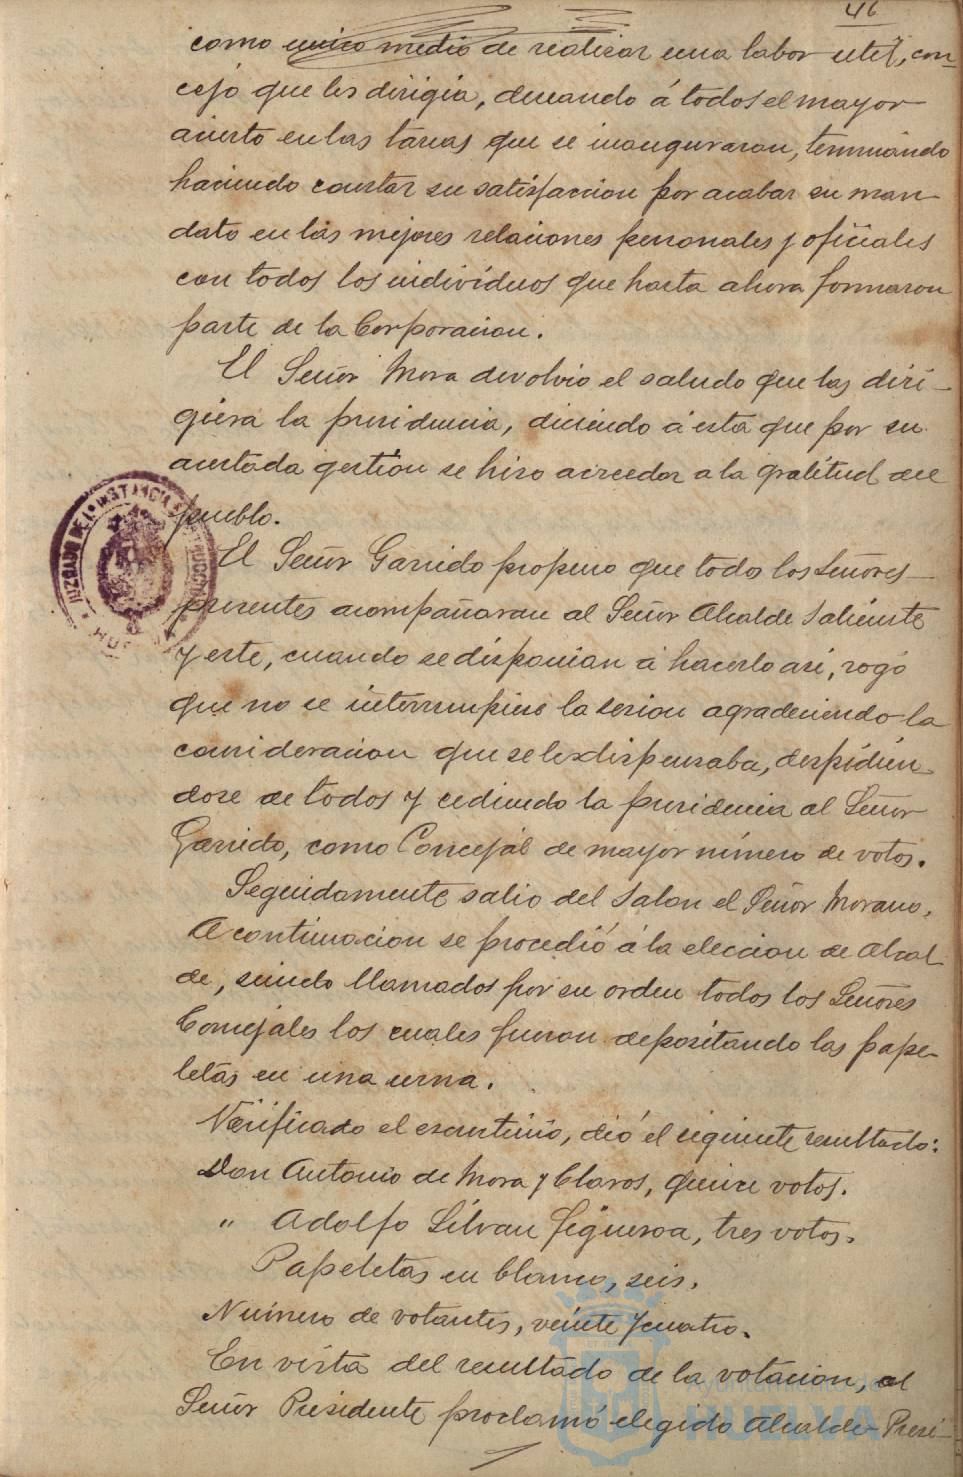 46
como unico medio de realizar una labor util, con-
cejo que les dirigia, deseando á todos el mayor
acierto en las tareas que se inauguraran, terminando
haciendo constar su satisfaccion por acabar su man-
dato en las mejores relaciones personales y oficiales
con todos los individuos que hasta ahora formaron
parte de la Corporacion.
El Señor Mora devolvio el saludo que las diri-
giera la presidencia, diciendo á esta que por su
acertada gestion se hizo acreedor a la gratitud del
pueblo.
El Señor Garrido propuso que todos los Señores
presentes acompañaran al Señor Alcalde saliente
y este, cuando se disponian á hacerlo asi, rogó
que no se interrumpiese la sesion agradeciendo la
consideracion que se le dispensaba, despidien-
dose de todos y cediendo la presidencia al Señor
Garrido, como Concejal de mayor número de votos.
Seguidamente salio del salon el Señor Morano.
A continuacion se procedió á la eleccion de Alcal
de, siendo llamados por su orden todos los Señores
Concejales los cuales fueron depositando las pape-
letas en una urna.
Verificado el escrutinio, dió el siguiente resultado:
Don Antonio de Mora y Claros, quince votos.
" Adolfo Silvan Figueroa, tres votos.
Papeletas en blanco, seis.
Número de votantes, veinte y cuatro.
En vista del resultado de la votacion, el
Señor Presidente proclamó elegido Alcalde-Presi-
JUZGADO DE 1ª INSTANCIA E INSTRUCCION
HUE
Ayuntamiento de
HUELVA